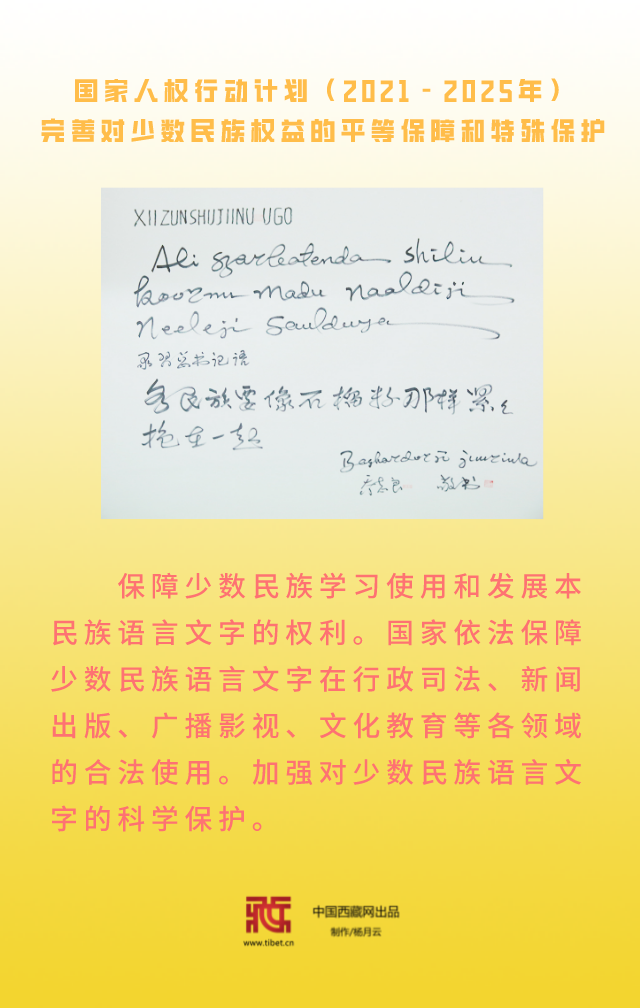 国家人权行动计划（2021－2025年）
完善对少数民族权益的平等保障和特殊保护
XIIZUNSHUJIINU UGO
Ali szarleatenda shiliu
madu naaldiji
Neeleji Saulduya
录习总书记语
各民族要像石榴籽那样紧紧
抱在一起
敬书
保障少数民族学习使用和发展本
民族语言文字的权利。国家依法保障
少数民族语言文字在行政司法、新闻
出版、广播影视、文化教育等各领域
的合法使用。加强对少数民族语言文
字的科学保护。
中国西藏网出品
制作/杨月云
www.tibet.cn